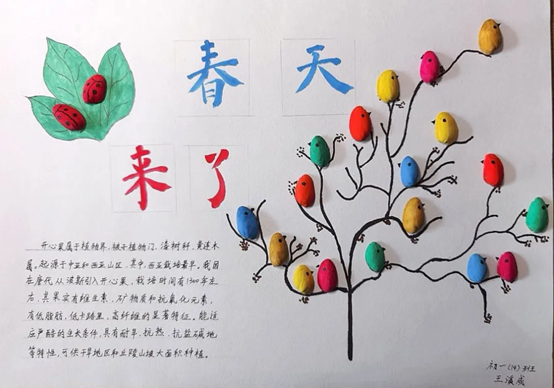 春天
来了
开心果属于植物界,被子植物门,漆树科,黄连木
属。起源于中亚和西亚山区,其中,西亚栽培最早。我国
在唐代从波斯引入开心果,栽培时间有1300年左
右,其果实有维生素、矿物质和抗氧化元素,
有低脂肪,低卡路里,高纤维的显著特征。能适
应严酷的生长条件,具有耐旱、抗热、抗盐碱地
等特性,可供干旱地区和丘陵山坡大面积种植。
初一(14)班
王成